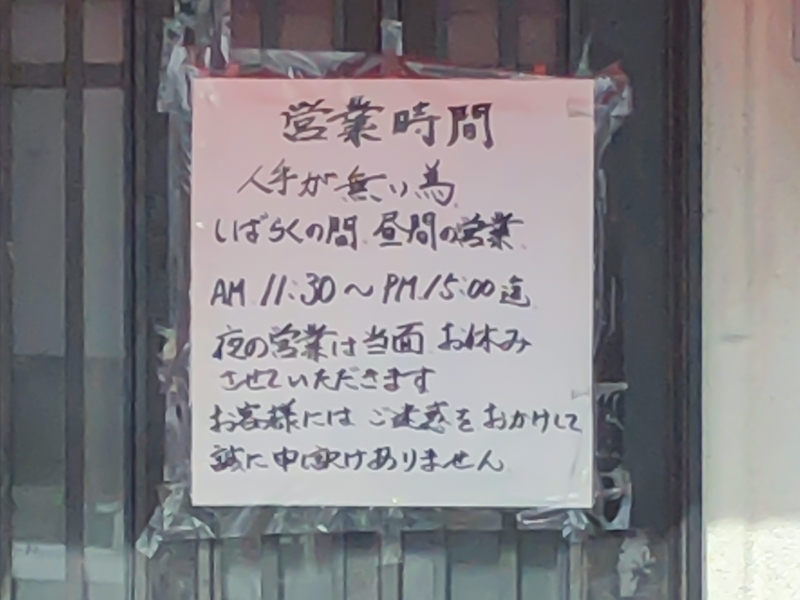 営業時間
人手が無い為
しばらくの間 昼間の営業
AM 11:30～PM 15:00 迄
夜の営業は当面 お休み
させていただきます
お客様には ご迷惑をおかけして
誠に申し訳ありません